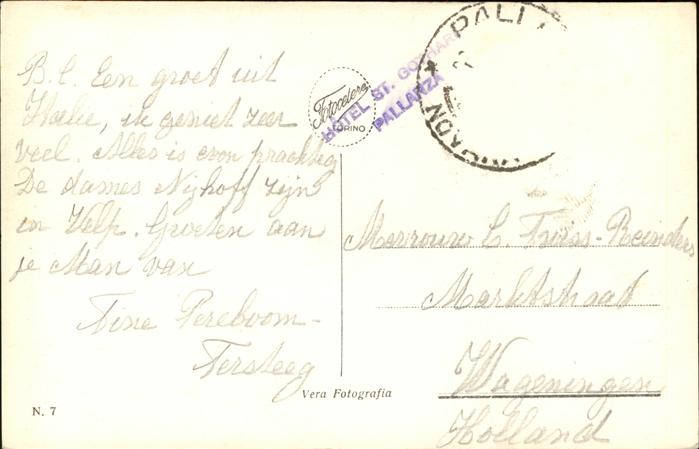 B. C. Een groet uit
Italie, ik geniet zeer
veel. Alles is even prachtig
De dames Nijhoff zijn
in Velp. Groeten aan
je Man van
Tine Pereboom-
Tersteeg
N. 7
Fotocelere
TORINO
HOTEL ST. GOTHARD
PALLANZA
PALL
Vera Fotografia
Mevrouw C. Twiss-Reinders
Marktstraat
Wageningen
Holland